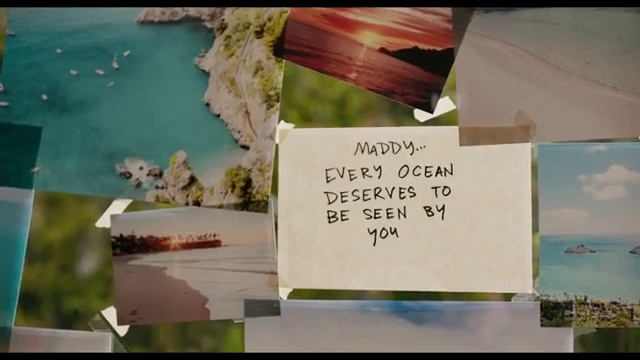 MADDY...
EVERY OCEAN
DESERVES TO
BE SEEN BY
YOU